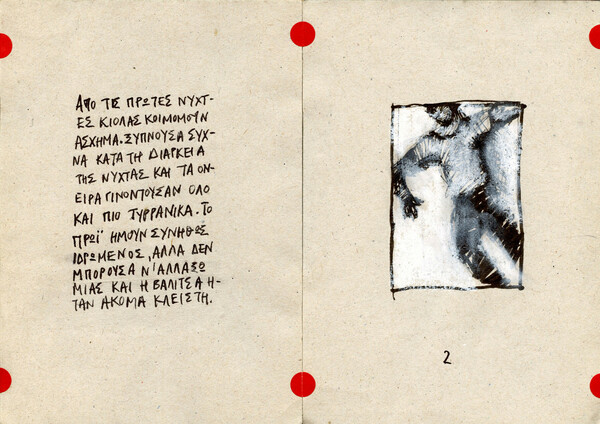 ΑΠΟ ΤΙΣ ΠΡΩΤΕΣ ΝΥΧΤ-
ΕΣ ΚΙΟΛΑΣ ΚΟΙΜΟΜΟΥΝ
ΑΣΧΗΜΑ. ΞΥΠΝΟΥΣΑ ΣΥΧ-
ΝΑ ΚΑΤΑ ΤΗ ΔΙΑΡΚΕΙΑ
ΤΗΣ ΝΥΧΤΑΣ ΚΑΙ ΤΑ ΟΝ-
ΕΙΡΑ ΓΙΝΟΝΤΟΥΣΑΝ ΟΛΟ
ΚΑΙ ΠΙΟ ΤΥΡΡΑΝΙΚΑ. ΤΟ
ΠΡΩΪ ΗΜΟΥΝ ΣΥΝΗΘΩΣ
ΙΔΡΩΜΕΝΟΣ, ΑΛΛΑ ΔΕΝ
ΜΠΟΡΟΥΣΑ Ν'ΑΛΛΑΞΩ
ΜΙΑΣ ΚΑΙ Η ΒΑΛΙΤΣΑ Η-
ΤΑΝ ΑΚΟΜΑ ΚΛΕΙΣΤΗ.
2